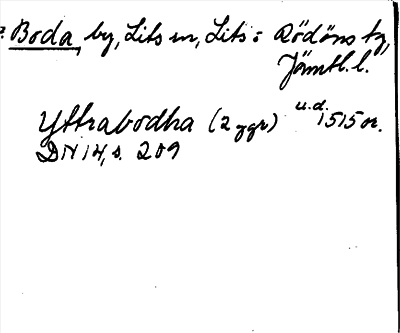 Boda, by, Lits sn, Lits o Rödöns tg,
Jämtl. l.
Yttrabodha (2 ggr) u.d. 1515 or.
DN 14, s. 209